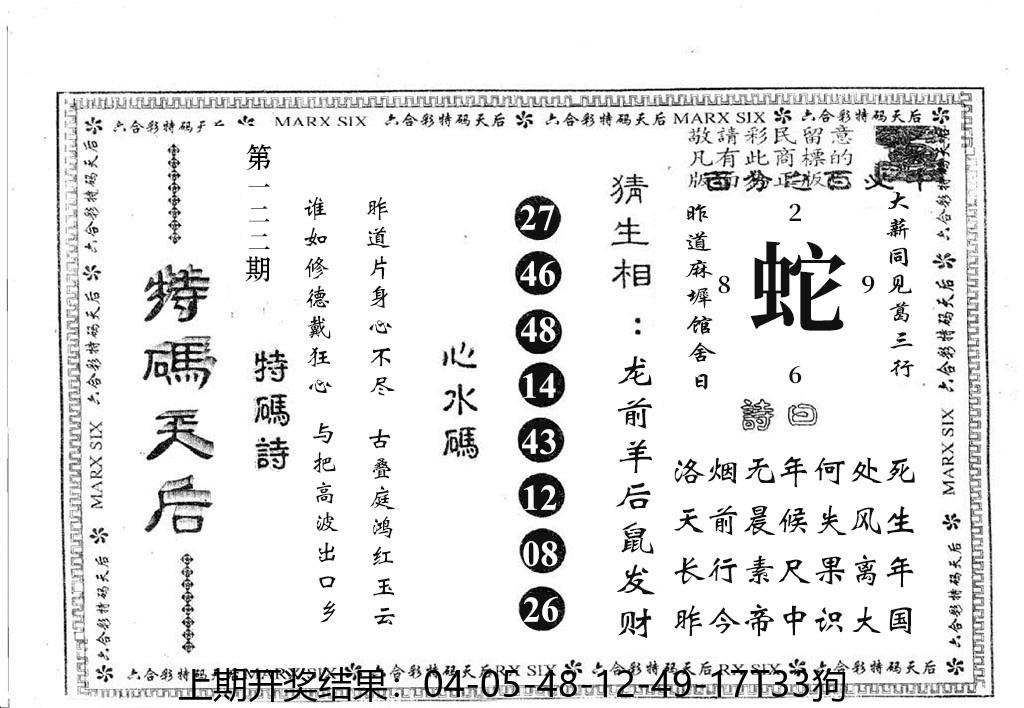 六合彩特码天后 MARX SIX 六合彩特码天后 六合彩特码天后 MARX SIX 六合彩特码天后
敬請彩民留意
凡有此商標的
版面为正版
大薪同见葛三行
2
8 蛇 9
6
昨道麻墀馆舍日
詩曰
洛烟无年何处死
天前晨候失风生
长行素尺果离年
昨今帝中识大国
猜生相：龙前羊后鼠发财
27
46
48
14
43
12
08
26
心水碼
昨道片身心不尽 古叠庭鸿红玉云
谁如修德戴狂心 与把高波出口乡
特碼詩
第一二二期
特碼天后
六合彩特码天后 六合彩特码天后 MARX SIX 六合彩特码天后
六合彩特码天后 六合彩特码天后 MARX SIX 六合彩特码天后
上期开奖结果：04-05-48-12-49-17T33狗